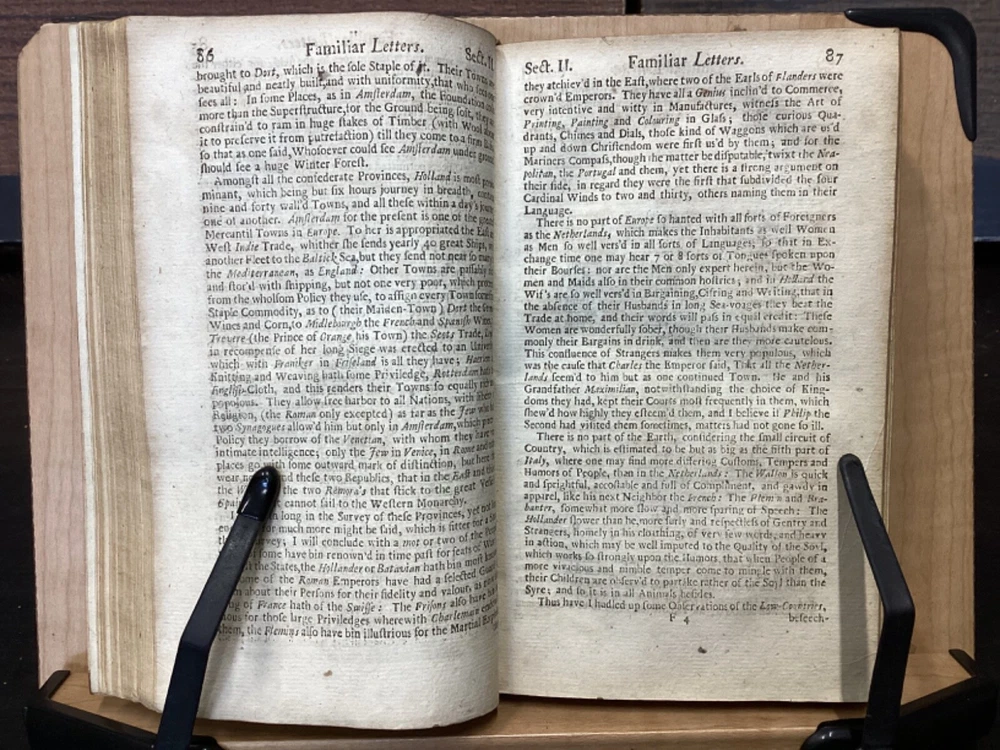 86 Familiar Letters. Sect. II.
brought to Dort, which is the ſole Staple of it. Their Towns
beautiful and neatly built, and with uniformity, that who
ſees all: In ſome Places, as in Amſterdam, the Foundation
more than the Superſtructure, for the Ground being ſoft, they
conſtrain'd to ram in huge ſtakes of Timber (with Wool
it to preſerve it from putrefaction) till they come to a firm
ſo that as one ſaid, Whoſoever could ſee Amſterdam under
ſhould ſee a huge Winter Foreſt.
Amongſt all the confederate Provinces, Holland is moſt
minant, which being but ſix hours journey in breadth,
nine and forty wall'd Towns, and all theſe within a day's
one of another. Amſterdam for the preſent is one of the
Mercantil Towns in Europe. To her is appropriated the Eaſt
Weſt Indie Trade, whither ſhe ſends yearly 40 great Ships,
another Fleet to the Baltick Sea, but they ſend not near ſo many
the Mediterranean, as England: Other Towns are paſſably
and ſtor'd with ſhipping, but not one very poor, which
from the wholſom Policy they uſe, to aſſign every Town ſome
Staple Commodity, as to (their Maiden-Town) Dort the
Wines and Corn, to Middleburgh the French and Spaniſh
Trevere (the Prince of Orange his Town) the Scots Trade,
in recompenſe of her long Siege was erected to an
which with Franiker in Friſeland is all they have;
Knitting and Weaving hath ſome Priviledge, Rotterdam
Engliſh Cloth, and this renders their Towns ſo equally
populous. They allow free harbor to all Nations, with
Religion, (the Roman only excepted) as far as the Jew
two Synagogues allow'd him but only in Amſterdam, which
Policy they borrow of the Venetian, with whom they have
intimate intelligence; only the Jew in Venice, in Rome and
places go with ſome outward mark of diſtinction, but here
wear and theſe two Republics, that in the Eaſt and
the the two Remora's that ſtick to the great
cannot ſail to the Weſtern Monarchy.
long in the Survey of theſe Provinces, yet not
much more might be ſaid, which is fitter for a
I will conclude with a mot or two of the
ſome have bin renown'd in time paſt for feats of
the States, the Hollander or Batavian hath bin moſt
of the Roman Emperors have had a ſelected
about their Perſons for their fidelity and valour, as
of France hath of the Swiſſe: The Friſons alſo have
for thoſe large Priviledges wherewith Charlemain
them, the Flemins alſo have bin illuſtrious for the Martial
Sect. II. Familiar Letters. 87
they atchiev'd in the Eaſt, where two of the Earls of Flanders were
crown'd Emperors. They have all a Genius inclin'd to Commerce,
very intentive and witty in Manufactures, witneſs the Art of
Printing, Painting and Colouring in Glaſs; thoſe curious Qua-
drants, Chimes and Dials, thoſe kind of Waggons which are us'd
up and down Chriſtendom were firſt us'd by them; and for the
Mariners Compaſs, though the matter be diſputable, 'twixt the Nea-
politan, the Portugal and them, yet there is a ſtrong argument on
their ſide, in regard they were the firſt that ſubdivided the four
Cardinal Winds to two and thirty, others naming them in their
Language.
There is no part of Europe ſo hanted with all ſorts of Foreigners
as the Netherlands, which makes the Inhabitants as well Women
as Men ſo well vers'd in all ſorts of Languages, ſo that in Ex-
change time one may hear 7 or 8 ſorts of Tongues ſpoken upon
their Bourſes: nor are the Men only expert herein, but the Wo-
men and Maids alſo in their common hoſtries; and in Holland the
Wif's are ſo well vers'd in Bargaining, Cifring and Writing, that in
the abſence of their Husbands in long Sea-voiages they beat the
Trade at home, and their words will paſs in equal credit: Theſe
Women are wonderfully ſober, though their Husbands make com-
monly their Bargains in drink, and then are they more cautelous.
This confluence of Strangers makes them very populous, which
was the cauſe that Charles the Emperor ſaid, That all the Nether-
lands ſeem'd to him but as one continued Town. He and his
Grandfather Maximilian, notwithſtanding the choice of King-
doms they had, kept their Courts moſt frequently in them, which
ſhew'd how highly they eſteem'd them, and I believe if Philip the
Second had viſited them ſometimes, matters had not gone ſo ill.
There is no part of the Earth, conſidering the ſmall circuit of
Country, which is eſtimated to be but as big as the fifth part of
Italy, where one may find more differing Cuſtoms, Tempers and
Humors of People, than in the Netherlands: The Wallon is quick
and ſprightful, accoſtable and full of Complement, and gawdy in
apparel, like his next Neighbor the French: The Flemin and Bra-
banter, ſomewhat more ſlow and more ſparing of Speech: The
Hollander ſlower than he, more ſurly and reſpectleſs of Gentry and
Strangers, homely in his cloathing, of very few words, and heavy
in action, which may be well imputed to the Quality of the Soil,
which works ſo ſtrongly upon the Humors, that when People of a
more vivacious and nimble temper come to mingle with them,
their Children are obſerv'd to partake rather of the Soyl than the
Syre; and ſo it is in all Animals beſides.
Thus have I hudled up ſome Obſervations of the Low-Countries,
F 4 beſeech-